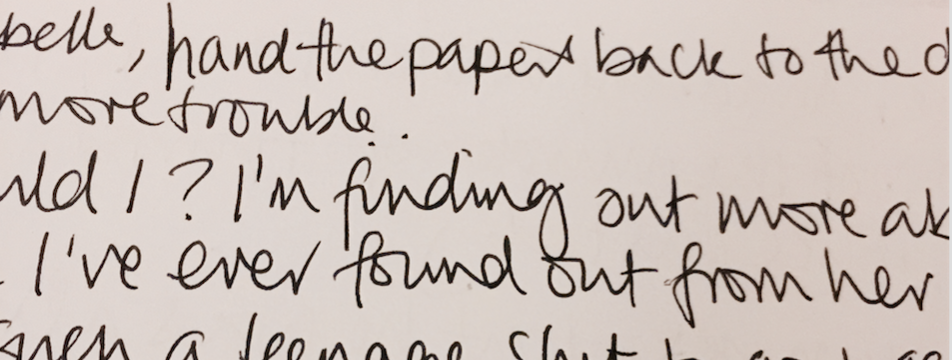 belle, hand the papers back to the d
more trouble.
uld I? I'm finding out more ab
I've ever found out from her
a teenage